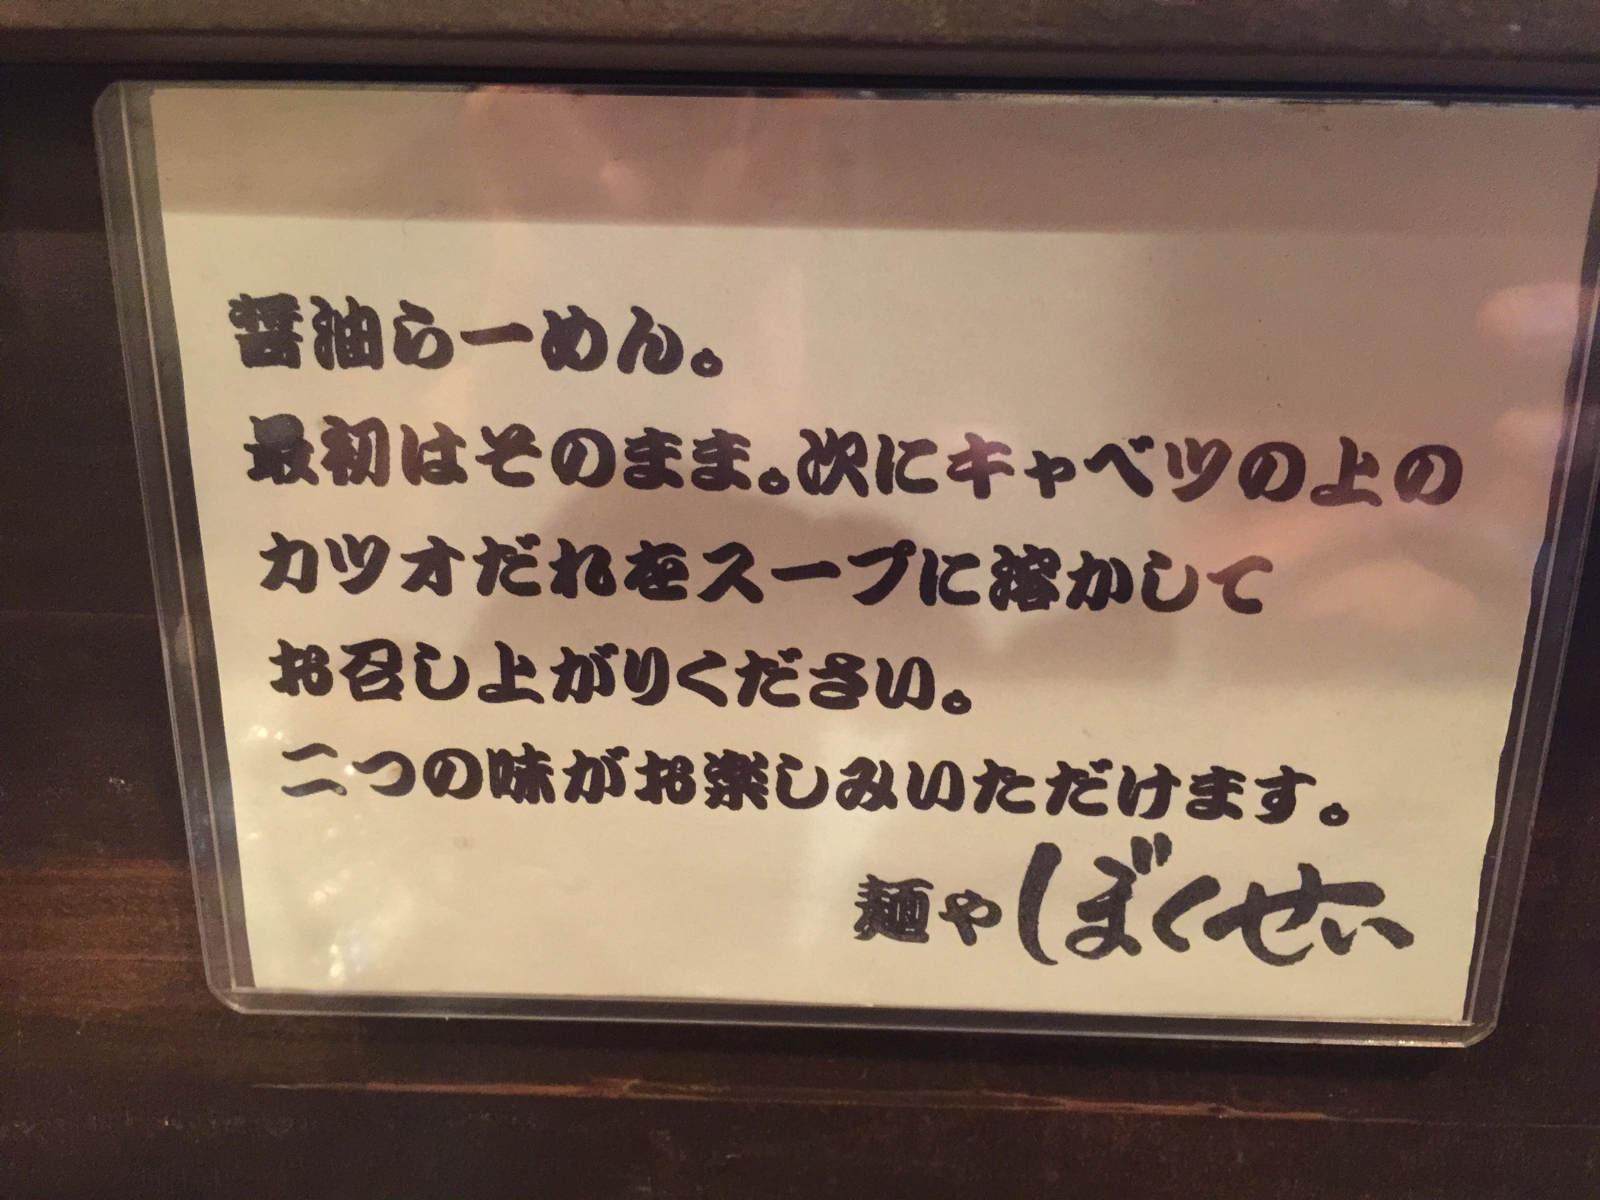 醤油らーめん。
最初はそのまま。次にキャベツの上の
カツオだれをスープに溶かして
お召し上がりください。
二つの味がお楽しみいただけます。
麺や ぼくせい